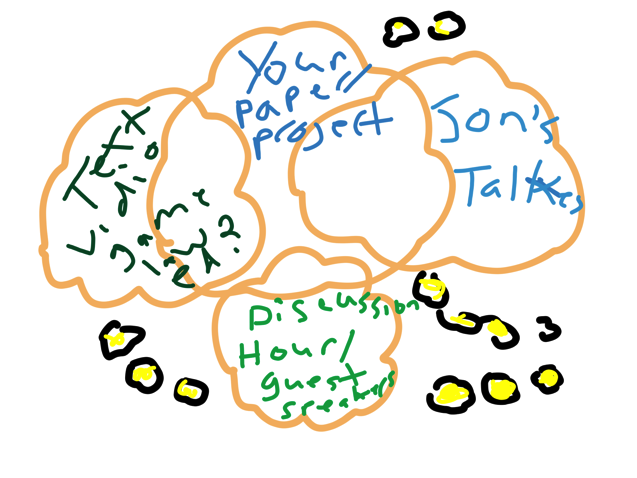 Your
paper/
project
Jon's
Talks
game
Discussion
Hour/
guest
speakers